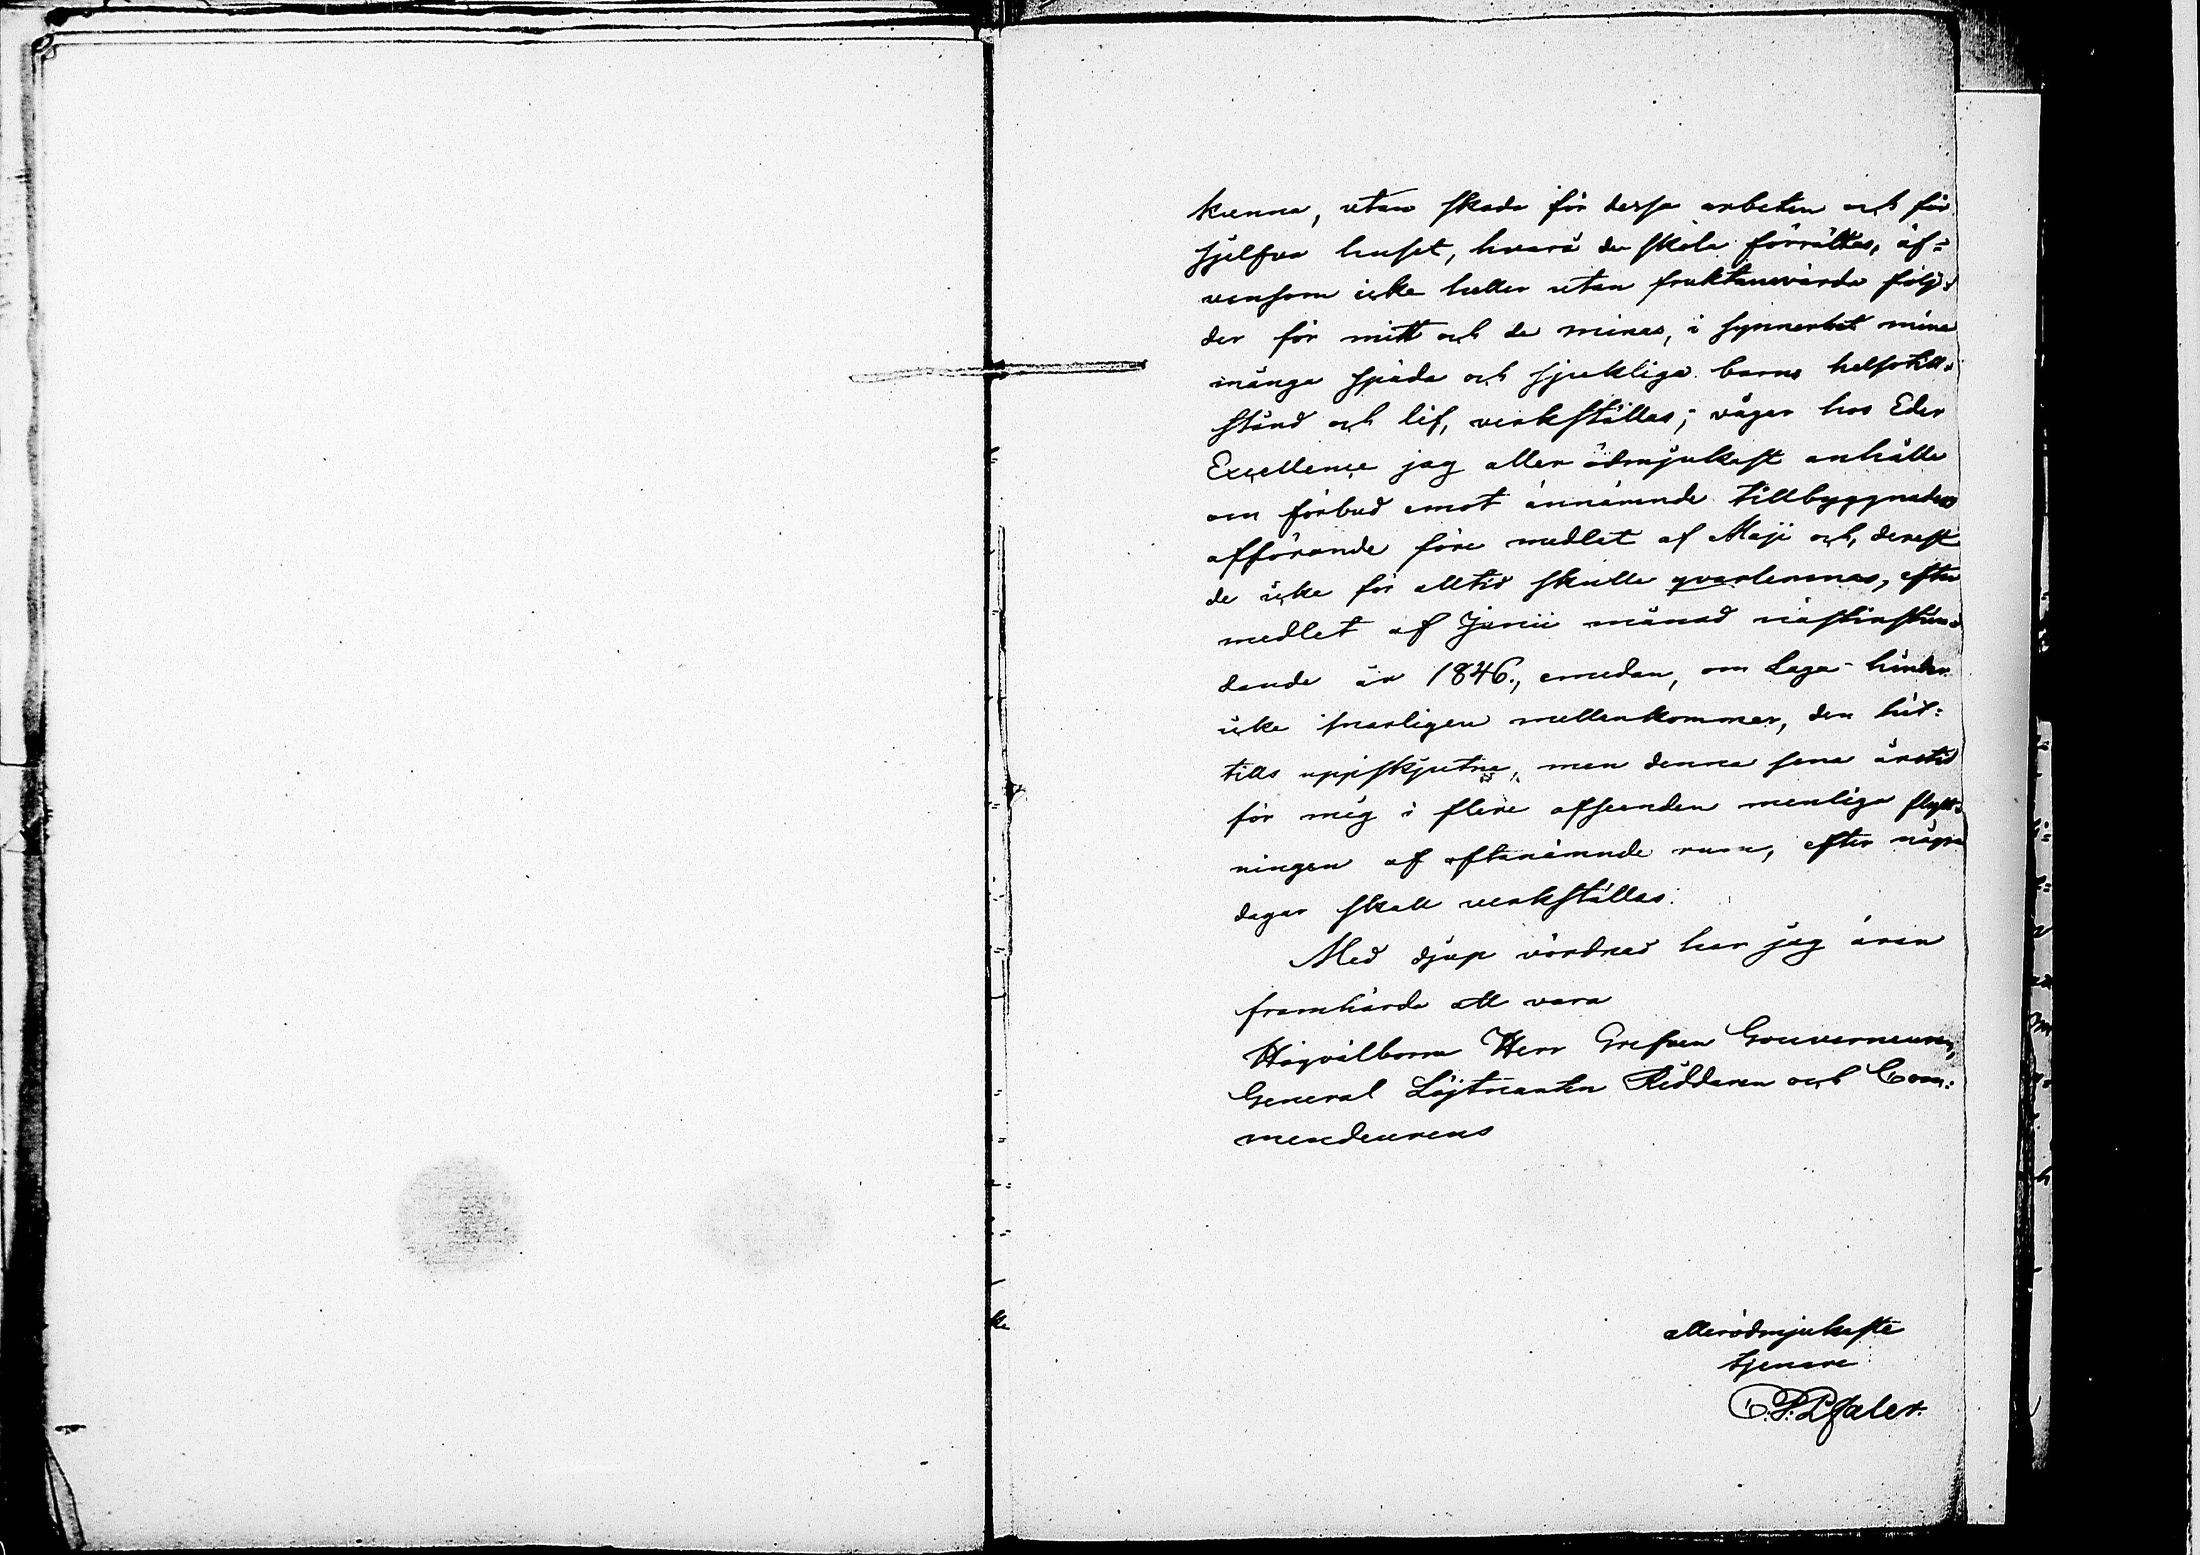 kunna, utan skada för dessa arbeten och för
sjelfva huset, hvari de skola förrättas, äf=
vensom icke heller utan fruktansvärda följ=
der för mitt och de minas, i synnerhet mina
många späda och sjukliga barns helsotill=
stånd och lif, verkställas; vågar hos Eders
Excellence jag aller ödmjukast anhålla
om förbud emot ännämnde tillbyggnaders
afförande före medlet af Maji och, derest
de icke för alltid skulle qvarlemnas, efter
medlet af Junii månad nästinstun=
dande år 1846., emedan, om Laga hinder
icke snarligen mellankommer, den hit=
tills uppskjutne, men denna sena årstid
för mig i flere afseenden menliga flytt=
ningen af oftanämnde rum, efter några
dagar skall verkställas.
Med djup vördnad har jag äran
framhärda att vara
Högvälborne Herr Grefven Gouverneuren,
General Löjtnanten Riddaren och Com=
mendeurens
allerödmjukaste
tjenare